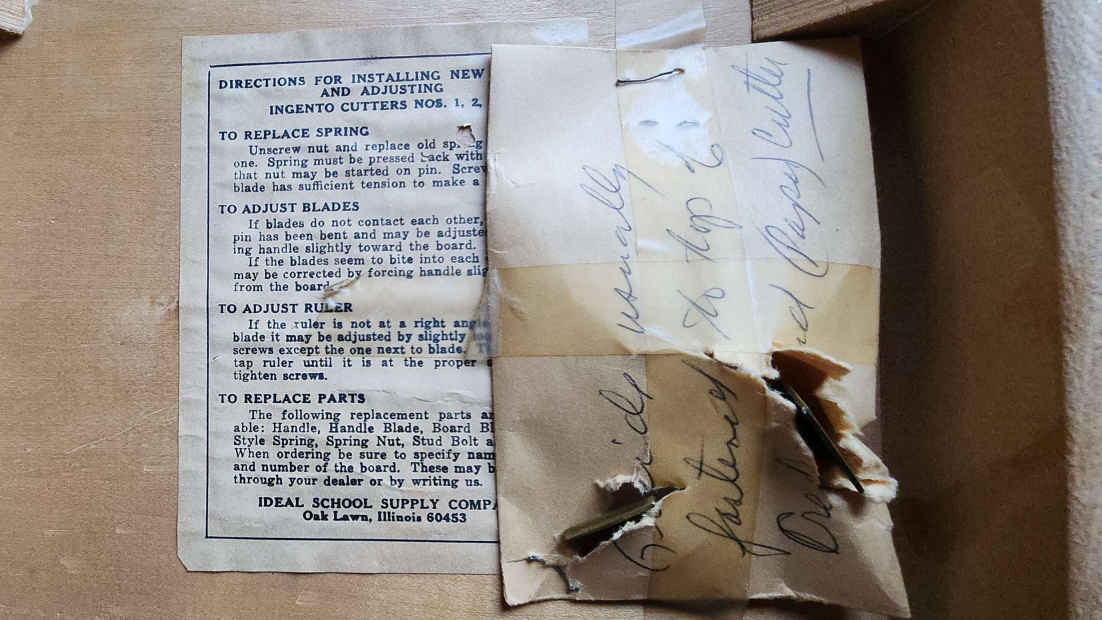 DIRECTIONS FOR INSTALLING NEW
AND ADJUSTING
INGENTO CUTTERS NOS. 1, 2,
TO REPLACE SPRING
Unscrew nut and replace old spring
one. Spring must be pressed back with
that nut may be started on pin. Screw
blade has sufficient tension to make a
TO ADJUST BLADES
If blades do not contact each other,
pin has been bent and may be adjusted
ing handle slightly toward the board.
If the blades seem to bite into each
may be corrected by forcing handle slig
from the board
TO ADJUST RULER
If the ruler is not at a right angle
blade it may be adjusted by slightly
screws except the one next to blade. T
tap ruler until it is at the proper a
tighten screws.
TO REPLACE PARTS
The following replacement parts ar
able: Handle, Handle Blade, Board Bl
Style Spring, Spring Nut, Stud Bolt a
When ordering be sure to specify nam
and number of the board. These may b
through your dealer or by writing us.
IDEAL SCHOOL SUPPLY COMPA
Oak Lawn, Illinois 60453
usually
fastened to top of
Paper Cutter